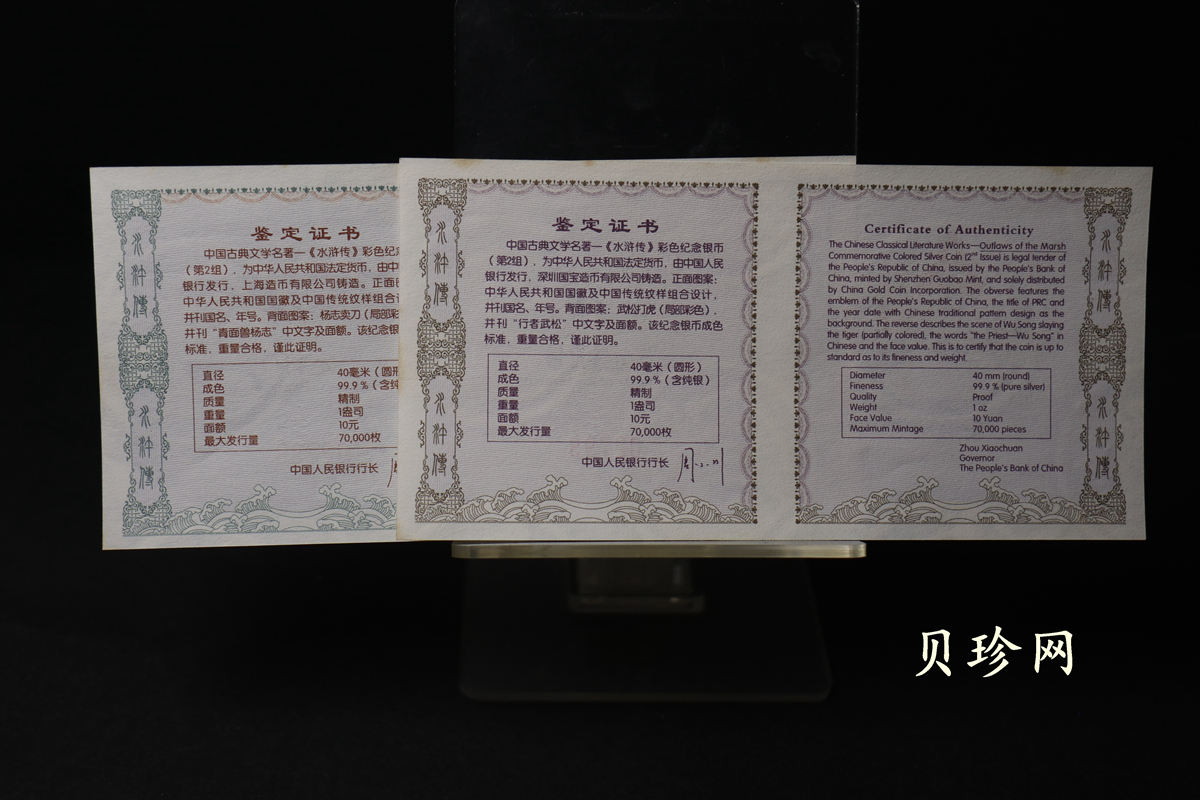 鉴定证书
中国古典文学名著—《水浒传》彩色纪念
（第2组），为中华人民共和国法定货币，由中
银行发行，上海造币有限公司铸造。正面
中华人民共和国国徽及中国传统纹样组合
并刊国名、年号。背面图案：杨志卖刀（局部彩色
并刊“青面兽杨志”中文字及面额。该纪念银
标准，重量合格，谨此证明。
直径 40毫米（圆形
成色 99.9%（含纯
质量 精制
重量 1盎司
面额 10元
最大发行量 70,000枚
中国人民银行行长
水浒傳
水浒傳
鉴定证书
中国古典文学名著—《水浒传》彩色纪念银币
（第2组），为中华人民共和国法定货币，由中国人民
银行发行，深圳国宝造币有限公司铸造。正面图案：
中华人民共和国国徽及中国传统纹样组合设计，
并刊国名、年号。背面图案：武松打虎（局部彩色），
并刊“行者武松”中文字及面额。该纪念银币成色
标准，重量合格，谨此证明。
直径 40毫米（圆形）
成色 99.9%（含纯银）
质量 精制
重量 1盎司
面额 10元
最大发行量 70,000枚
中国人民银行行长 周小川
水浒傳
水浒傳
Certificate of Authenticity
The Chinese Classical Literature Works—Outlaws of the Marsh
Commemorative Colored Silver Coin (2nd Issue) is legal tender of
the People's Republic of China, issued by the People's Bank of
China, minted by Shenzhen Guobao Mint, and solely distributed
by China Gold Coin Incorporation. The obverse features the
emblem of the People's Republic of China, the title of PRC and
the year date with Chinese traditional pattern design as the
background. The reverse describes the scene of Wu Song slaying
the tiger (partially colored), the words "the Priest—Wu Song" in
Chinese and the face value. This is to certify that the coin is up to
standard as to its fineness and weight.
Diameter 40 mm (round)
Fineness 99.9 % (pure silver)
Quality Proof
Weight 1 oz
Face Value 10 Yuan
Maximum Mintage 70,000 pieces
Zhou Xiaochuan
Governor
The People's Bank of China
水浒傳
水浒傳
贝珍网